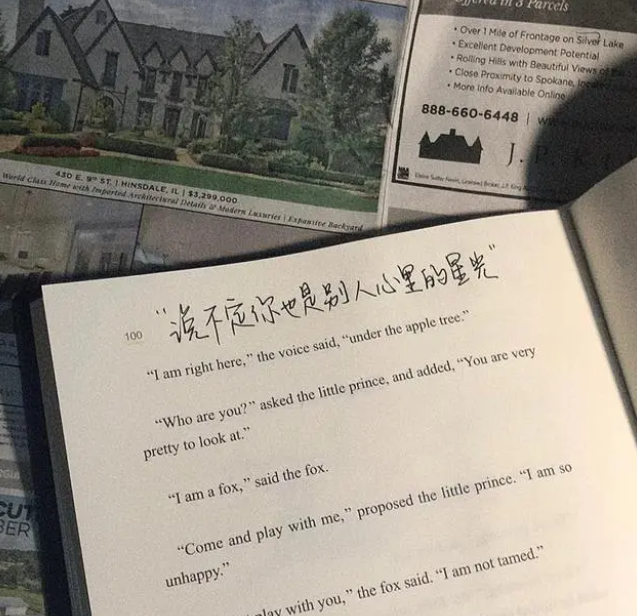 Offered in 3 Parcels
• Over 1 Mile of Frontage on Silver Lake
• Excellent Development Potential
• Rolling Hills with Beautiful Views of
• Close Proximity to Spokane,
• More Info Available Online
888-660-6448 |
J.
430 E. 9TH ST. | HINSDALE, IL | $3,299,000
World Class Home with Imported Architectural Details & Modern Luxuries | Expansive Backyard
“说不定你也是别人心里的星光”
100
“I am right here,” the voice said, “under the apple tree.”
“Who are you?” asked the little prince, and added, “You are very
pretty to look at.”
“I am a fox,” said the fox.
“Come and play with me,” proposed the little prince. “I am so
unhappy.”
play with you,” the fox said. “I am not tamed.”